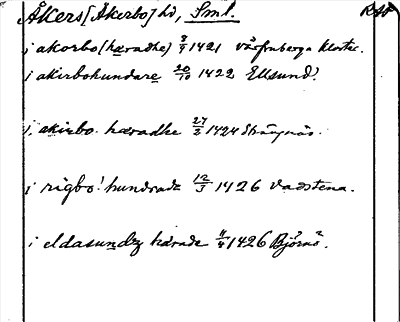 Åkers [Åkerbo] hd, Sml. RAP
i akorbo (hæradhe) 8/9 1421 Vårfruberga kloster.
i akirbohundare 20/10 1422 Ellsund?
i akirbo hæradhe 27/2 1424 Strängnäs.
i rigbo! hundradz 12/3 1426 Vadstena.
i eldasundz hæradz 11/4 1426 Björnö.